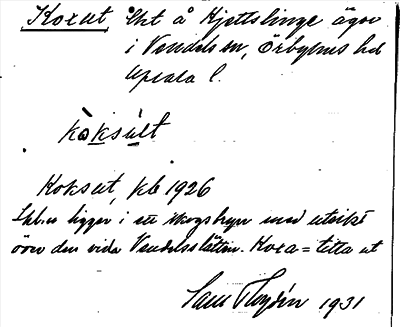 Koxut, lht å Kjettslinge ägor
i Vendels sn, Örbyhus hd
Upsala l.
kòksút
Koksut, kb 1926
Lht.n ligger i en skogsbryn med utsikt
över den vida Vendelsslätten. Koxa = titta ut
Sam Flodén 1931